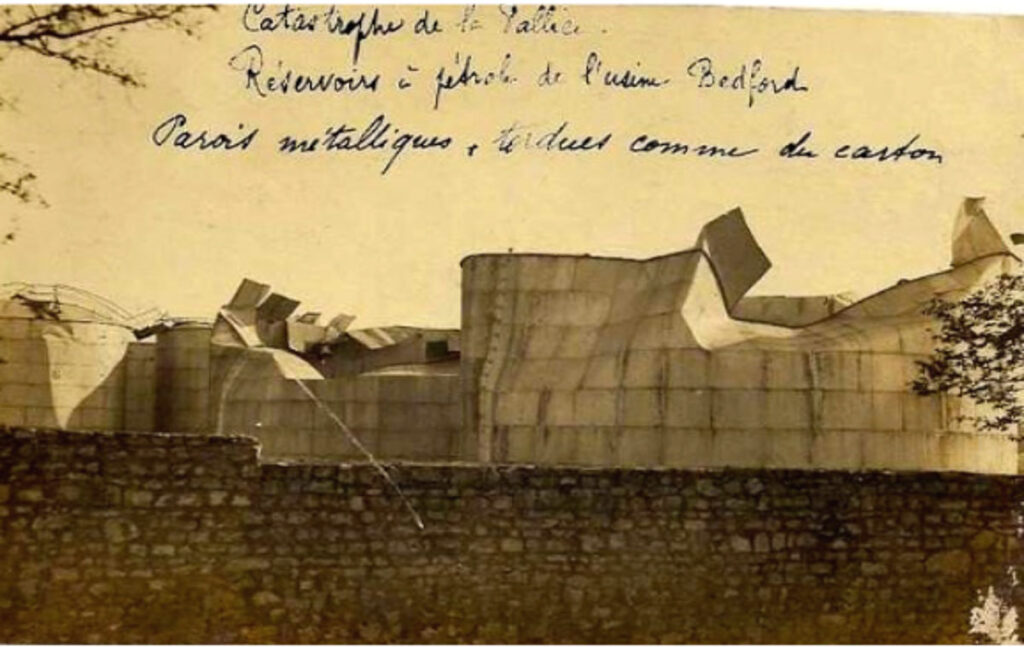 Catastrophe de la Pallice.
Réservoirs à pétrole de l'usine Bedford
Parois métalliques, tordues comme du carton